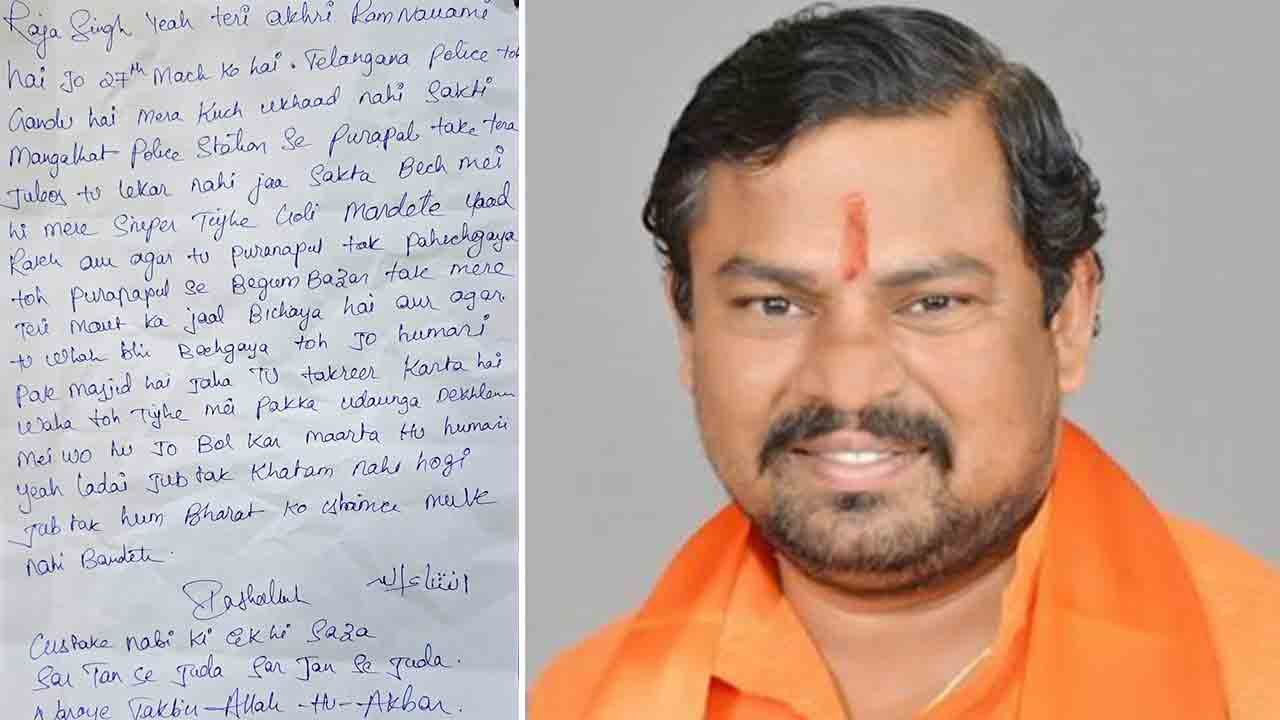 Raja Singh Yeah teri akhri Ram Navami
hai Jo 27th Mach Ko hai. Telangana Police toh
Gandu hai mera Kuch ukhaad nahi Sakti
Mangalhat Police Station Se Purapul take tera
Juloos tu lekar nahi jaa Sakta Bech mei
hi mere Sniper Tujhe Goli Mardete yaad
Rakh aur agar tu puranapul tak Pahechgaya
toh Purapapul se Begum Bazar take mere
Teri Maut ka jaal Bichaya hai aur agar.
tu Whah bhi Bachgaya toh Jo humari
Pak masjid hai Jaha Tu takreer Karta hai
Waha toh Tujhe mei Pakka udaunga Dekhlena
Mei wo hu Jo Bol Kar maarta Hu humari
yeah Ladai Jub tak Khatam nahi hogi
Jub tak hum Bharat Ko mulk
nahi Bandete.
انشاءالله
Custake nabi Ki ekhi Saza
Sar Tan Se Juda Sar Tan Se Juda.
Naraye Takbir - Allah - Hu - Akbar.